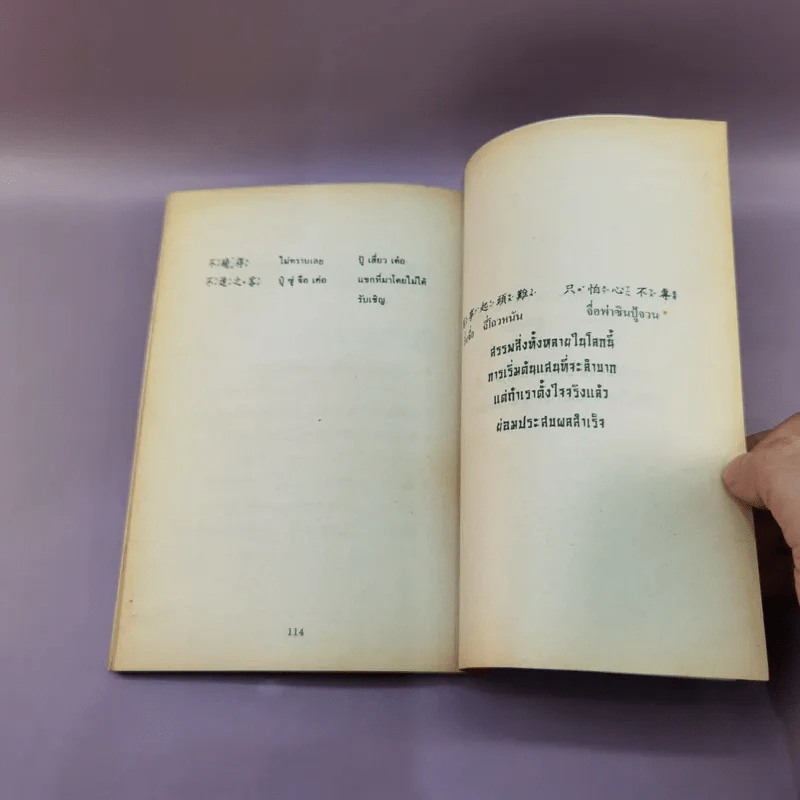 不曉得 ไม่ทราบเลย ปู้ เสี่ยว เต๋อ
不速之客 ปู้ ซู่ จือ เค่อ แขกที่มาโดยไม่ได้
รับเชิญ
114
事起頭難 只怕心不專
จื่อพ่าซินปู้จวน
สรรพสิ่งทั้งหลายในโลกนี้
การเริ่มต้นแสนที่จะลำบาก
แต่ถ้าเราตั้งใจจริงแล้ว
ย่อมประสบผลสำเร็จ